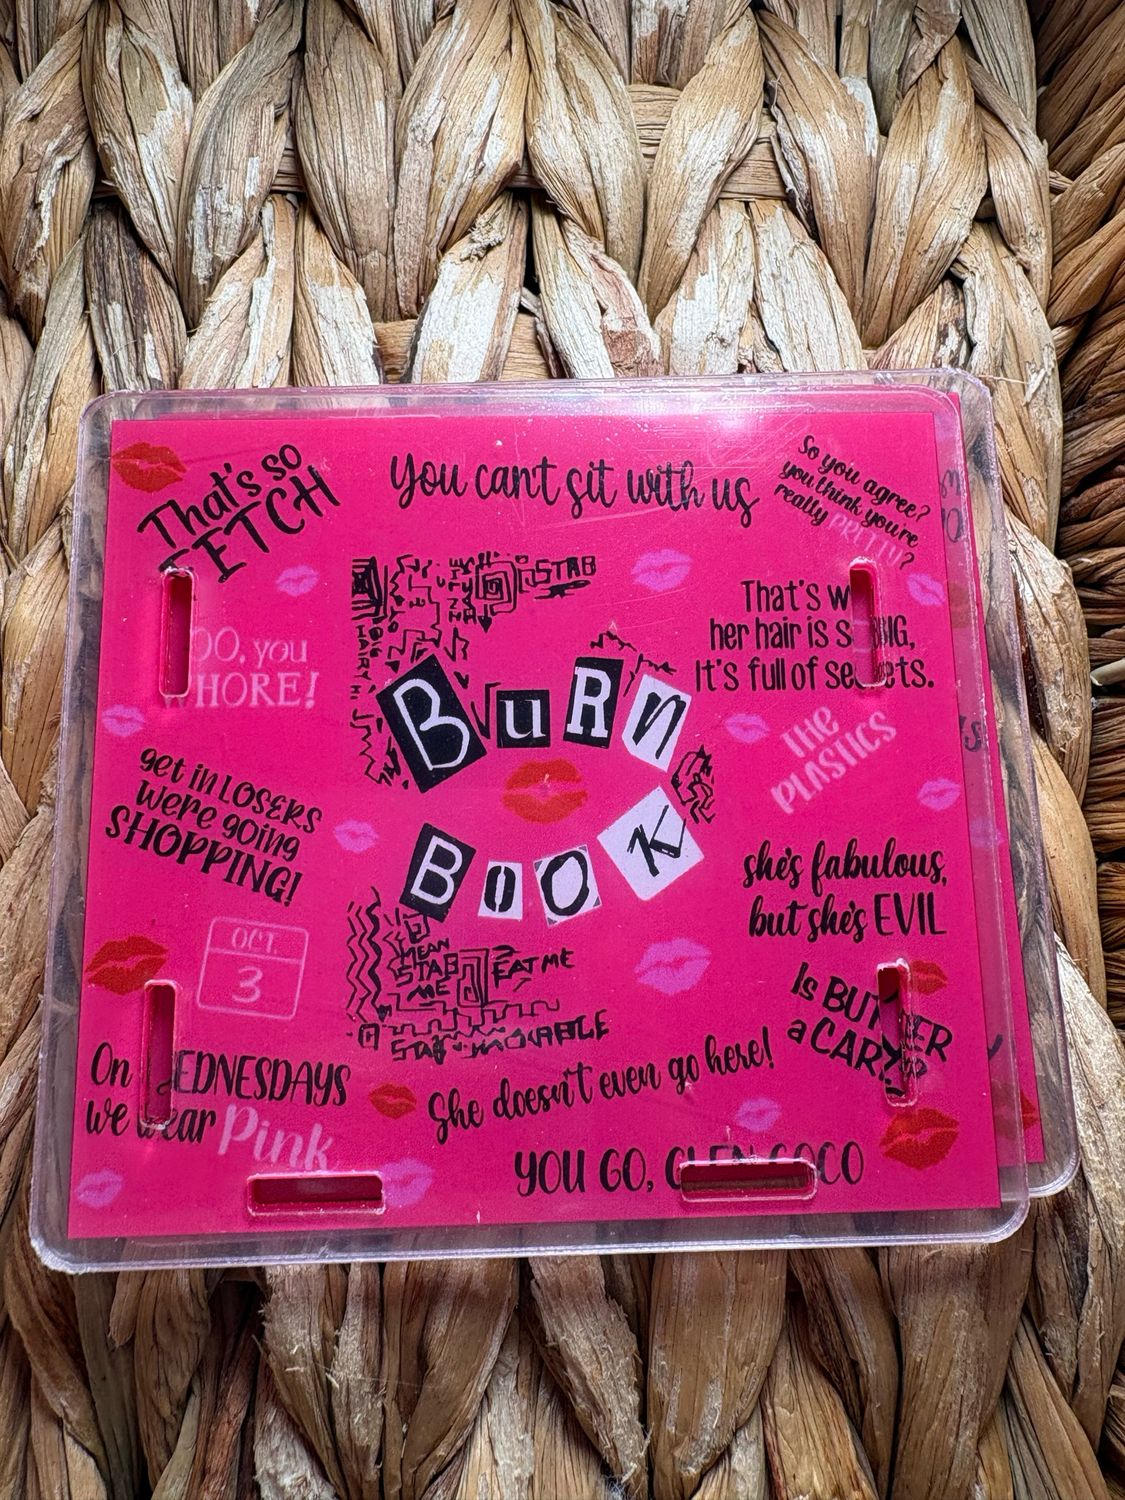 That's so
FETCH
You cant sit with us
So you agree?
you think you're
really PRETTY?
STAB
OO, you
WHORE!
That's w
her hair is s BIG,
It's full of secrets.
BURN
BOOK
THE
PLASTICS
get in LOSERS
we're going
SHOPPING!
she's fabulous,
but she's EVIL
OCT.
3
MEAN
STAB
ME
EAT ME
Is BUTTER
a CARB?
On WEDNESDAYS
we wear Pink
She doesn't even go here!
YOU GO, GLEN COCO